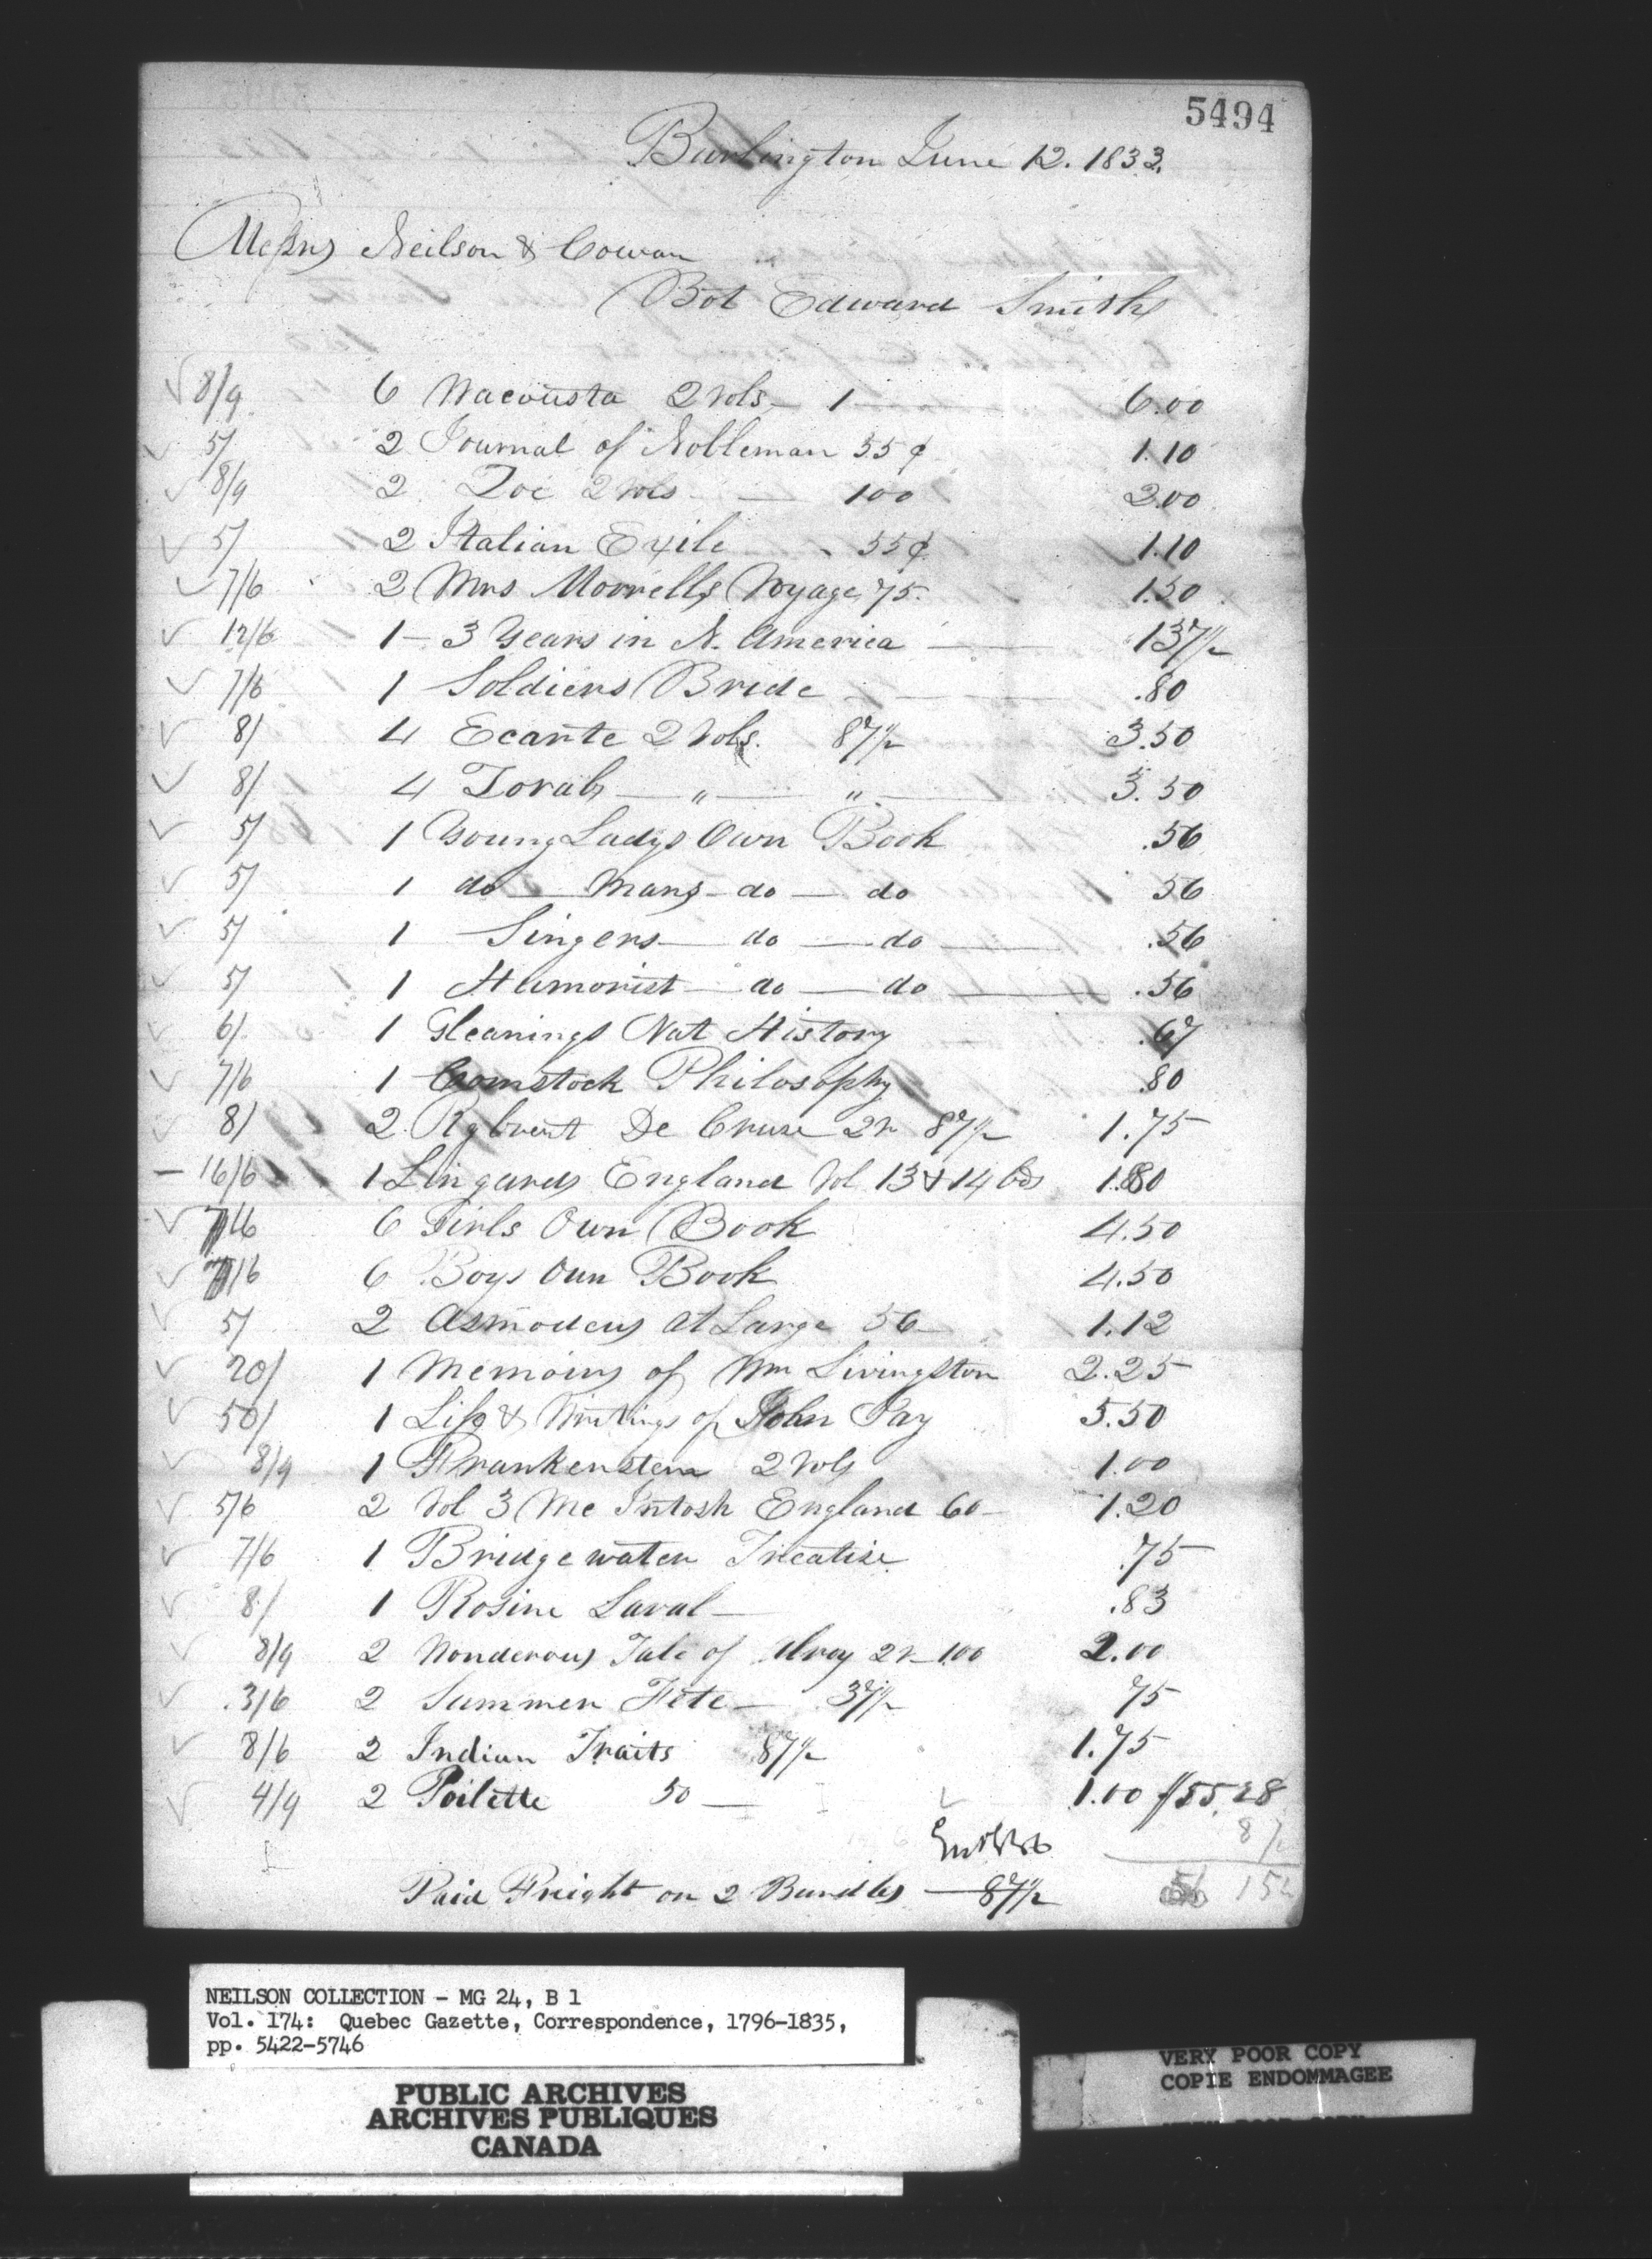 5494
Burlington June 12. 1833.
Messrs Neilson & Cowan
Bot Edward Smith
8/9 6 Wacousta 2 Vols - 1 — 6.00
5/ 2 Journal of Nobleman 55¢ 1.10
8/9 2 Zoe 2 Vols — 100 2.00
5/ 2 Italian Exile - 55¢ 1.10
7/6 2 Mrs Morrells Voyage 75. 1.50
12/6 1 - 3 Years in N. America — 1 37 1/2
7/6 1 Soldiers Bride — .80
8/ 4 Ecarte 2 Vols. 87 1/2 3.50
8/ 4 Zorab — " — " — 3.50
5/ 1 Young Ladys Own Book .56
5/ 1 do — Mans - do — do 56
5/ 1 Singers — do — do — .56
5/ 1 Humorist — do — do — .56
6/ 1 Gleanings Nat History .67
7/6 1 Comstock Philosophy .80
8/ 2 De Cruse 2v 87 1/2 1.75
16/6 1 Lingards England Vol 13 & 14 bds 1.80
7/6 6 Girls Own Book 4.50
7/6 6 Boys Own Book 4.50
5/ 2 Asmodeus at Large 56 — 1.12
20/ 1 Memoirs of Wm Livingston 2.25
50/ 1 Life & Writings of John Jay 5.50
8/9 1 Frankenstein 2 Vols 1.00
5/6 2 Vol 3 McIntosh England 60 - 1.20
7/6 1 Bridgewater Treatise .75
8/ 1 Rosine Laval — .83
8/9 2 Wonderous Tale of Alroy 2v - 100 2.00
.3/6 2 Summer Fete — 37 1/2 75
8/6 2 Indian Traits 87 1/2 1.75
4/9 2 Toilette 50 — 1.00 $55.28
Paid Freight on 2 Bundles — 87 1/2
NEILSON COLLECTION - MG 24, B 1
Vol. 174: Quebec Gazette, Correspondence, 1796-1835,
pp. 5422-5746
PUBLIC ARCHIVES
ARCHIVES PUBLIQUES
CANADA
VERY POOR COPY
COPIE ENDOMMAGEE